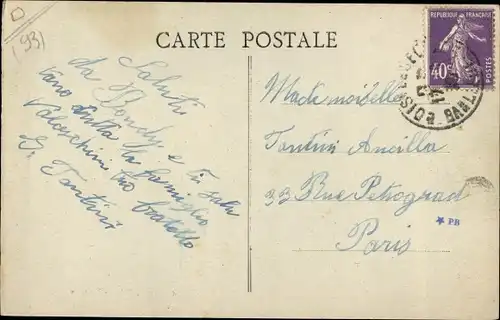 (93)
CARTE POSTALE
REPUBLIQUE FRANÇAISE
40c
POSTES
Saluti
da Bondy e ti salu
tano tutta la famiglia
tuo fratello
G. Tantini
Mademoiselle
Tantini Ancilla
33 Rue Petrograd
Paris
* PB